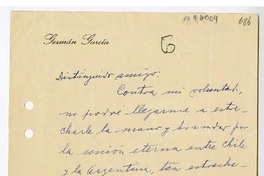 Germán García
6
686
Distinguido amigo:
Contra mi voluntad,
no podré llegarme a estre-
charle la mano y brindar por
la unión eterna entre Chile
y la Argentina, tan estrecha-